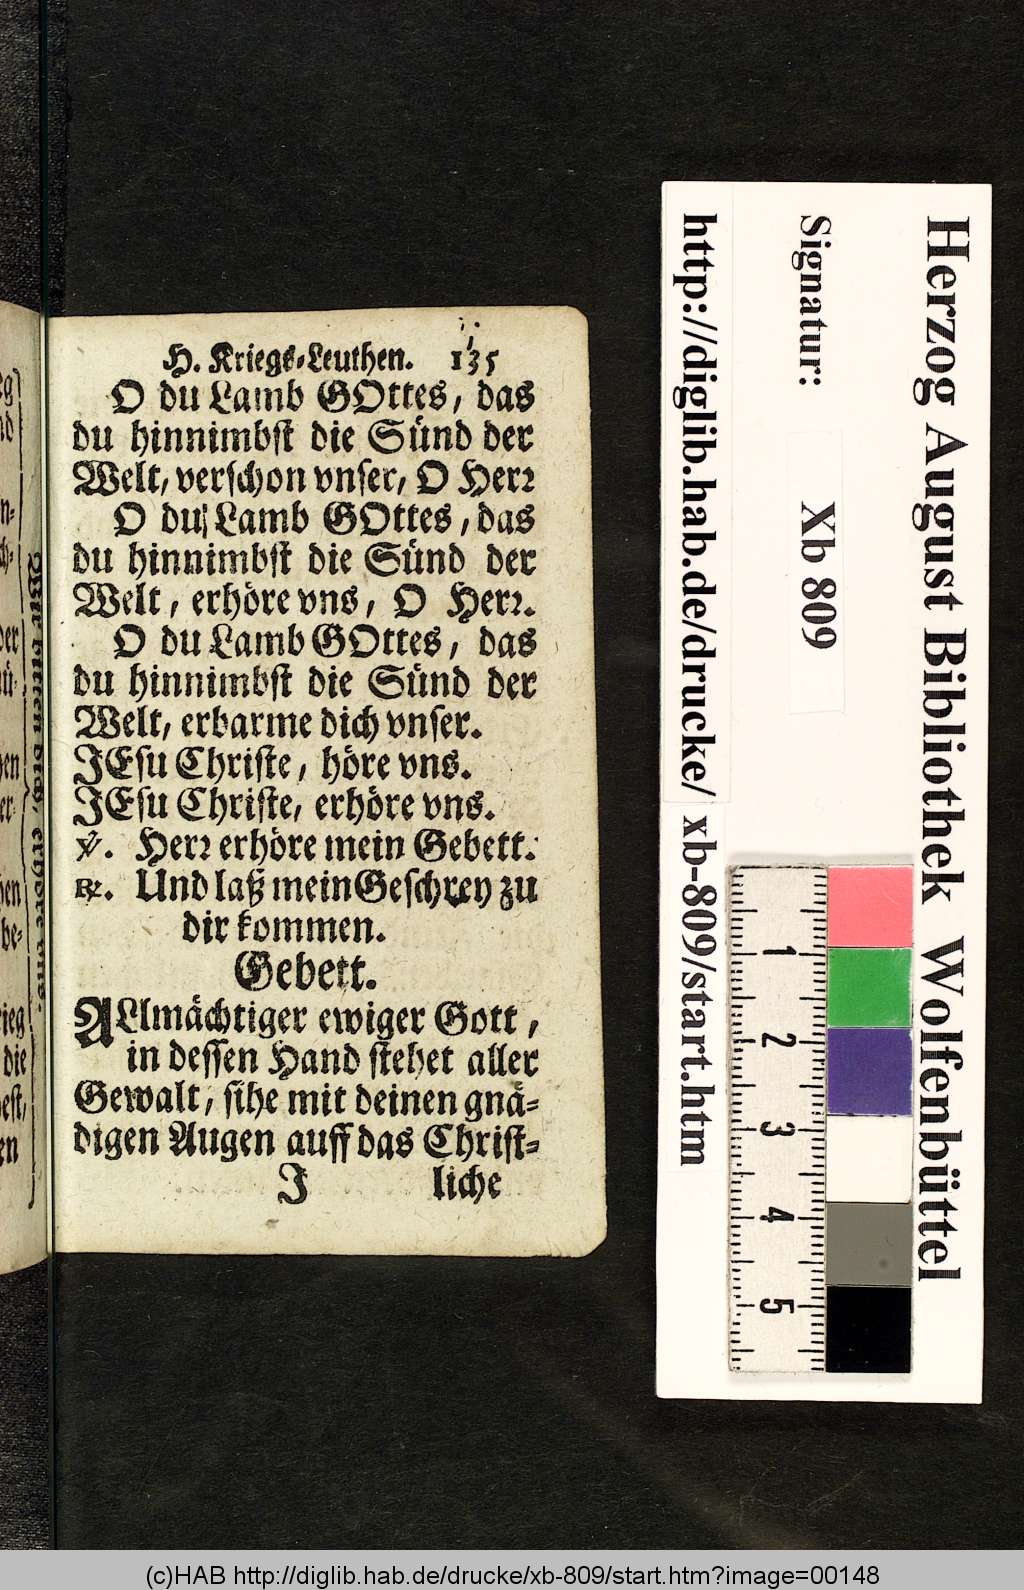 H. Kriegs-Leuthen. 135
O du Lamb GOttes, das
du hinnimbst die Sünd der
Welt, verschon vnser, O Herꝛ
O du Lamb GOttes, das
du hinnimbst die Sünd der
Welt, erhöre vns, O Herꝛ.
O du Lamb GOttes, das
du hinnimbst die Sünd der
Welt, erbarme dich vnser.
JEsu Christe, höre vns.
JEsu Christe, erhöre vns.
℣. Herꝛ erhöre mein Gebett.
℟. Und laß mein Geschrey zu
dir kommen.
Gebett.
ALlmächtiger ewiger Gott,
in dessen Hand stehet aller
Gewalt, sihe mit deinen gnä-
digen Augen auff das Christ-
J liche
Wir bitten dich, erhöre uns.
Herzog August Bibliothek Wolfenbüttel
Signatur: Xb 809
http://diglib.hab.de/drucke/ xb-809/start.htm
1
2
3
4
5
(c)HAB http://diglib.hab.de/drucke/xb-809/start.htm?image=00148